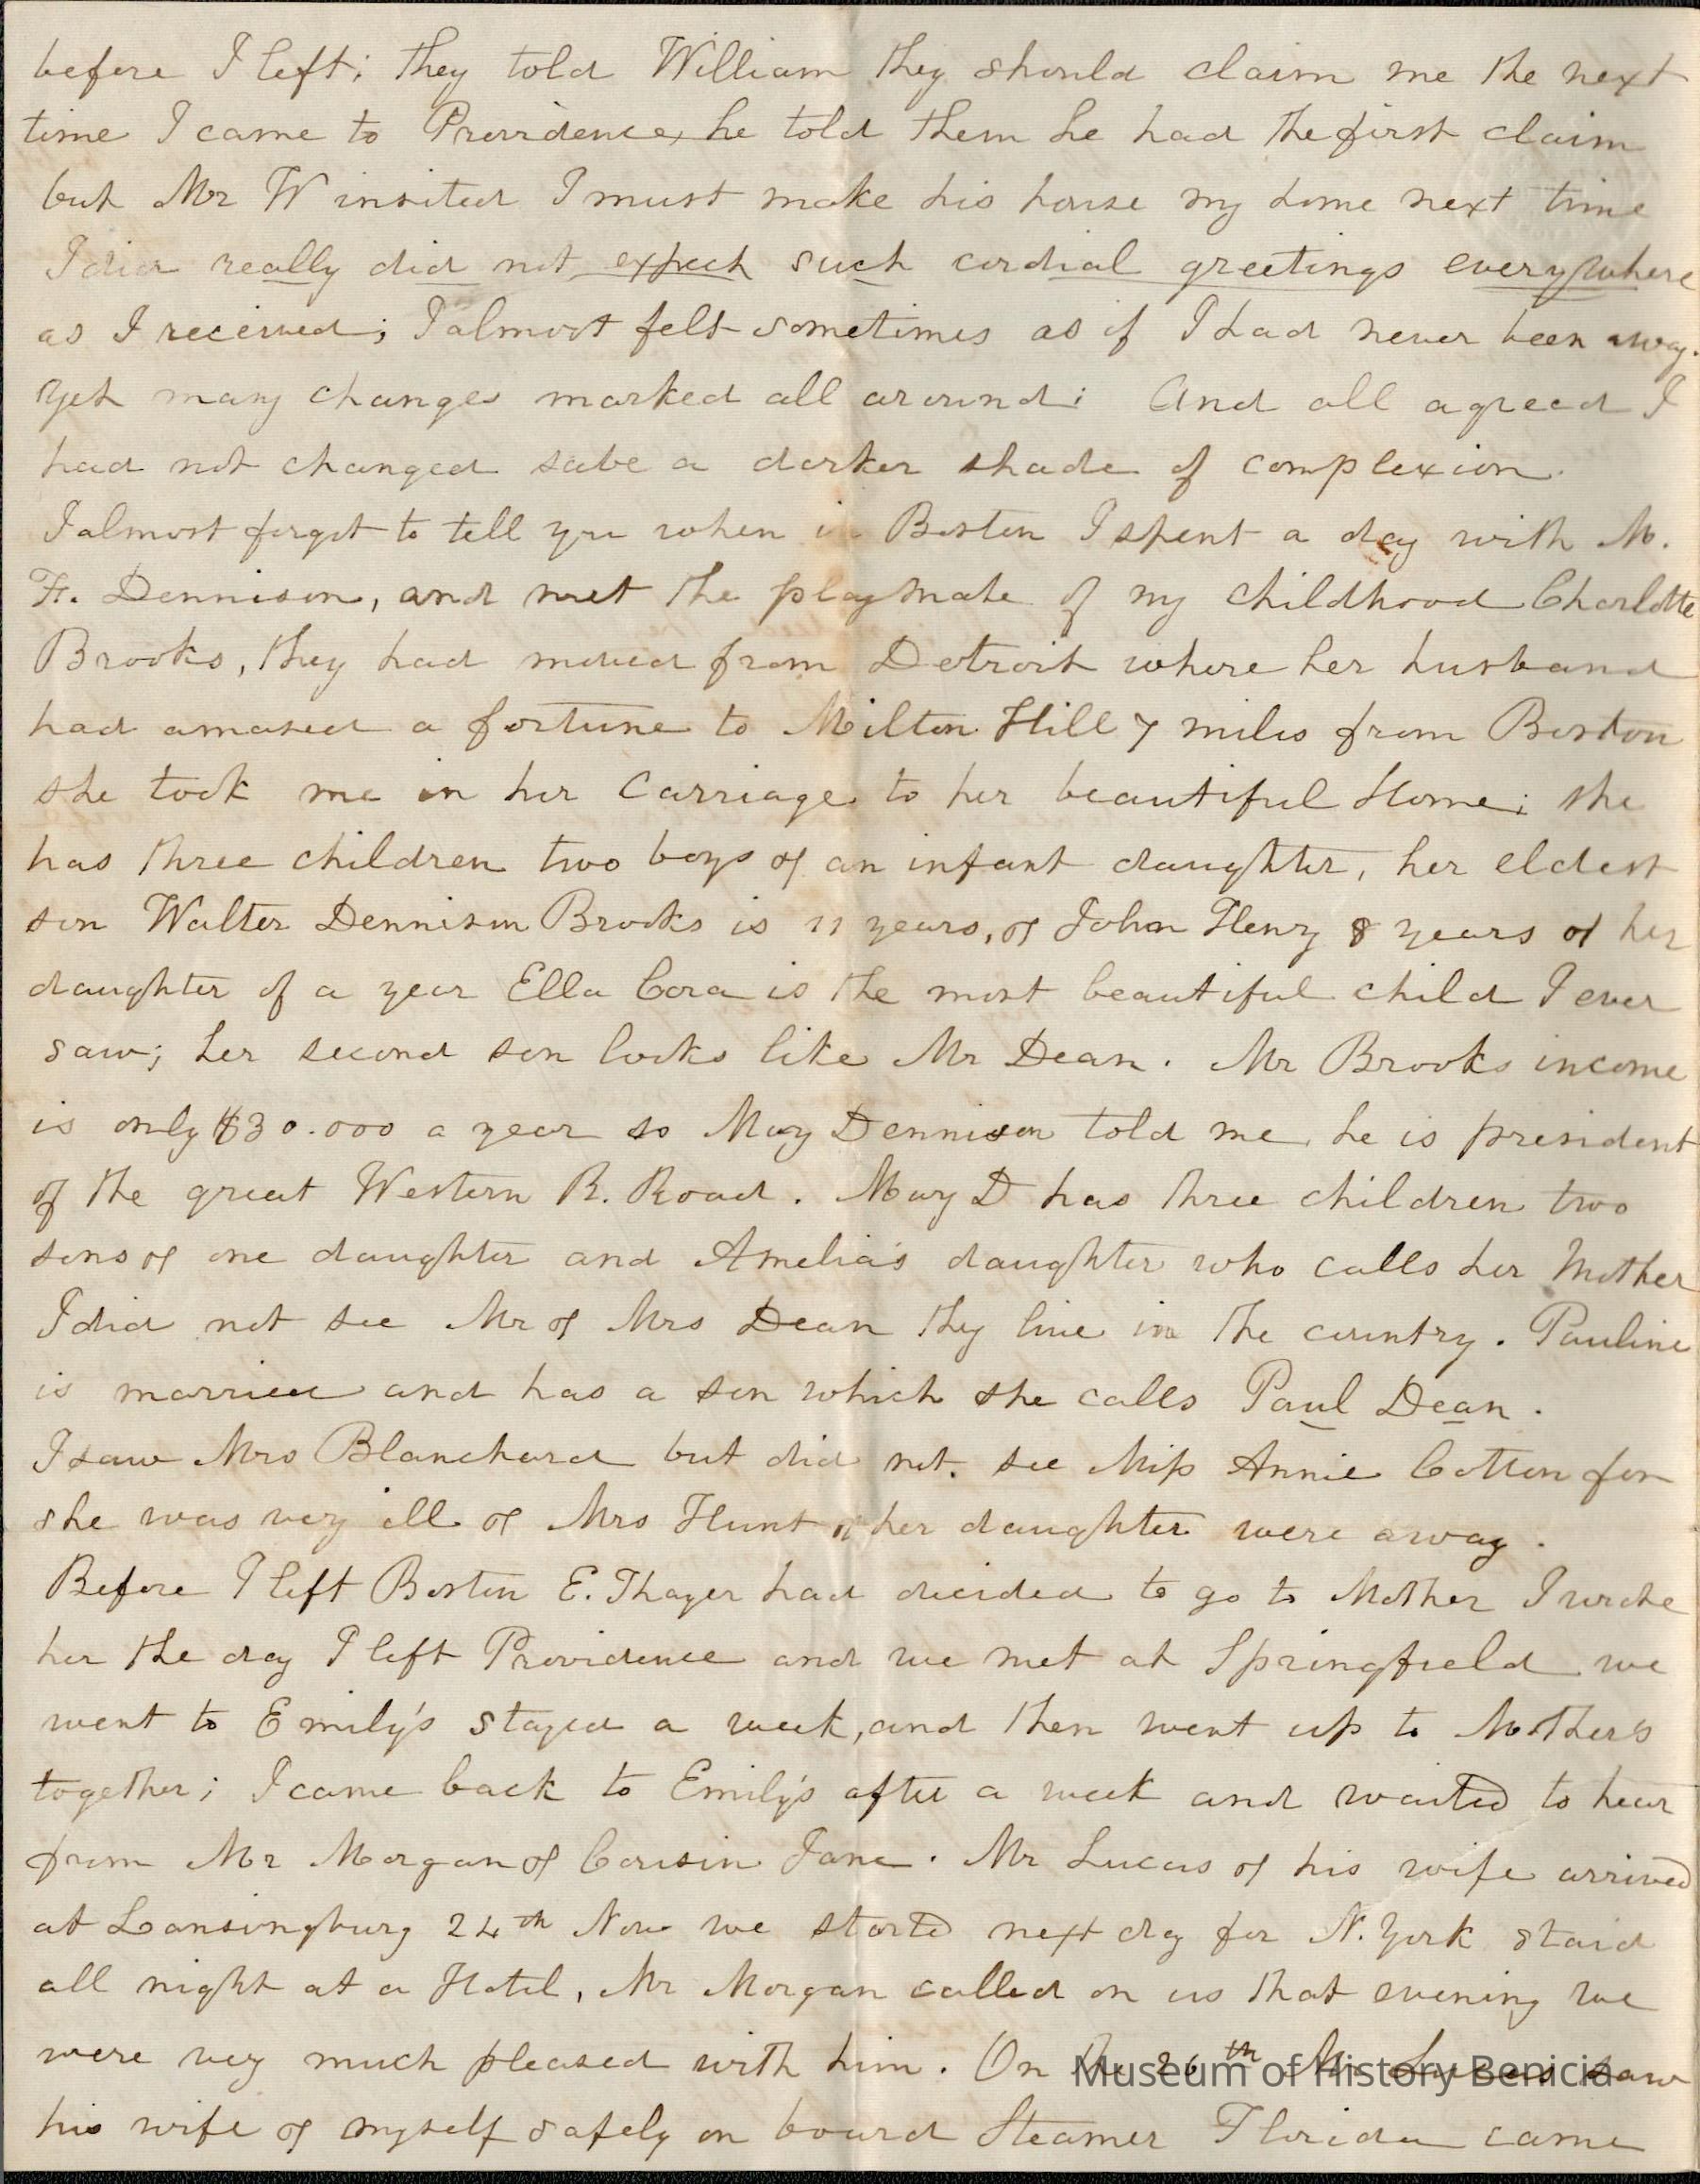 before I left; they told William they should claim me the next
time I came to Providence, he told them he had the first claim
but Mr W insited I must make his house my home next time
I did really did not expect such cordial greetings everywhere
as I received; I almost felt sometimes as if I had never been away.
yet many changes marked all around; And all agreed I
had not changed save a darker shade of complexion.
I almost forgot to tell you when in Boston I spent a day with M.
F. Dennison, and met the playmate of my childhood Charlotte
Brooks, they had moved from Detroit where her husband
had amased a fortune to Milton Hill 7 miles from Boston
she took me in her Carriage to her beautiful Home; she
has three children two boys & an infant daughter, her eldest
son Walter Dennison Brooks is 11 years, & John Henry 8 years & her
daughter of a year Ella Cora is the most beautiful child I ever
saw; her second son looks like Mr Dean. Mr Brooks income
is only $30.000 a year so Mary Dennison told me, he is president
of the great Western R. Road. Mary D has three children two
sons & one daughter and Amelia's daughter who calls her Mother
I did not see Mr & Mrs Dean they live in the country. Pauline
is married and has a son which she calls Paul Dean.
I saw Mrs Blanchard but did not. see Miss Annie Cotton for
she was very ill & Mrs Hunt & her daughter were away.
Before I left Boston E. Thayer had decided to go to Mother I wrote
her the day I left Providence and we met at Springfield we
went to Emily's stayed a week, and then went up to Mother's
together; I came back to Emily's after a week and waited to hear
from Mr Morgan & Cousin Jane. Mr Lucas & his wife arrived
at Lansingburg 24th Nov we started next day for N. York staid
all night at a Hotel, Mr Morgan called on us that evening we
were very much pleased with him. On the 26th Mr Lucas saw
his wife & myself safely on board Steamer Florida came
Museum of History Benicia